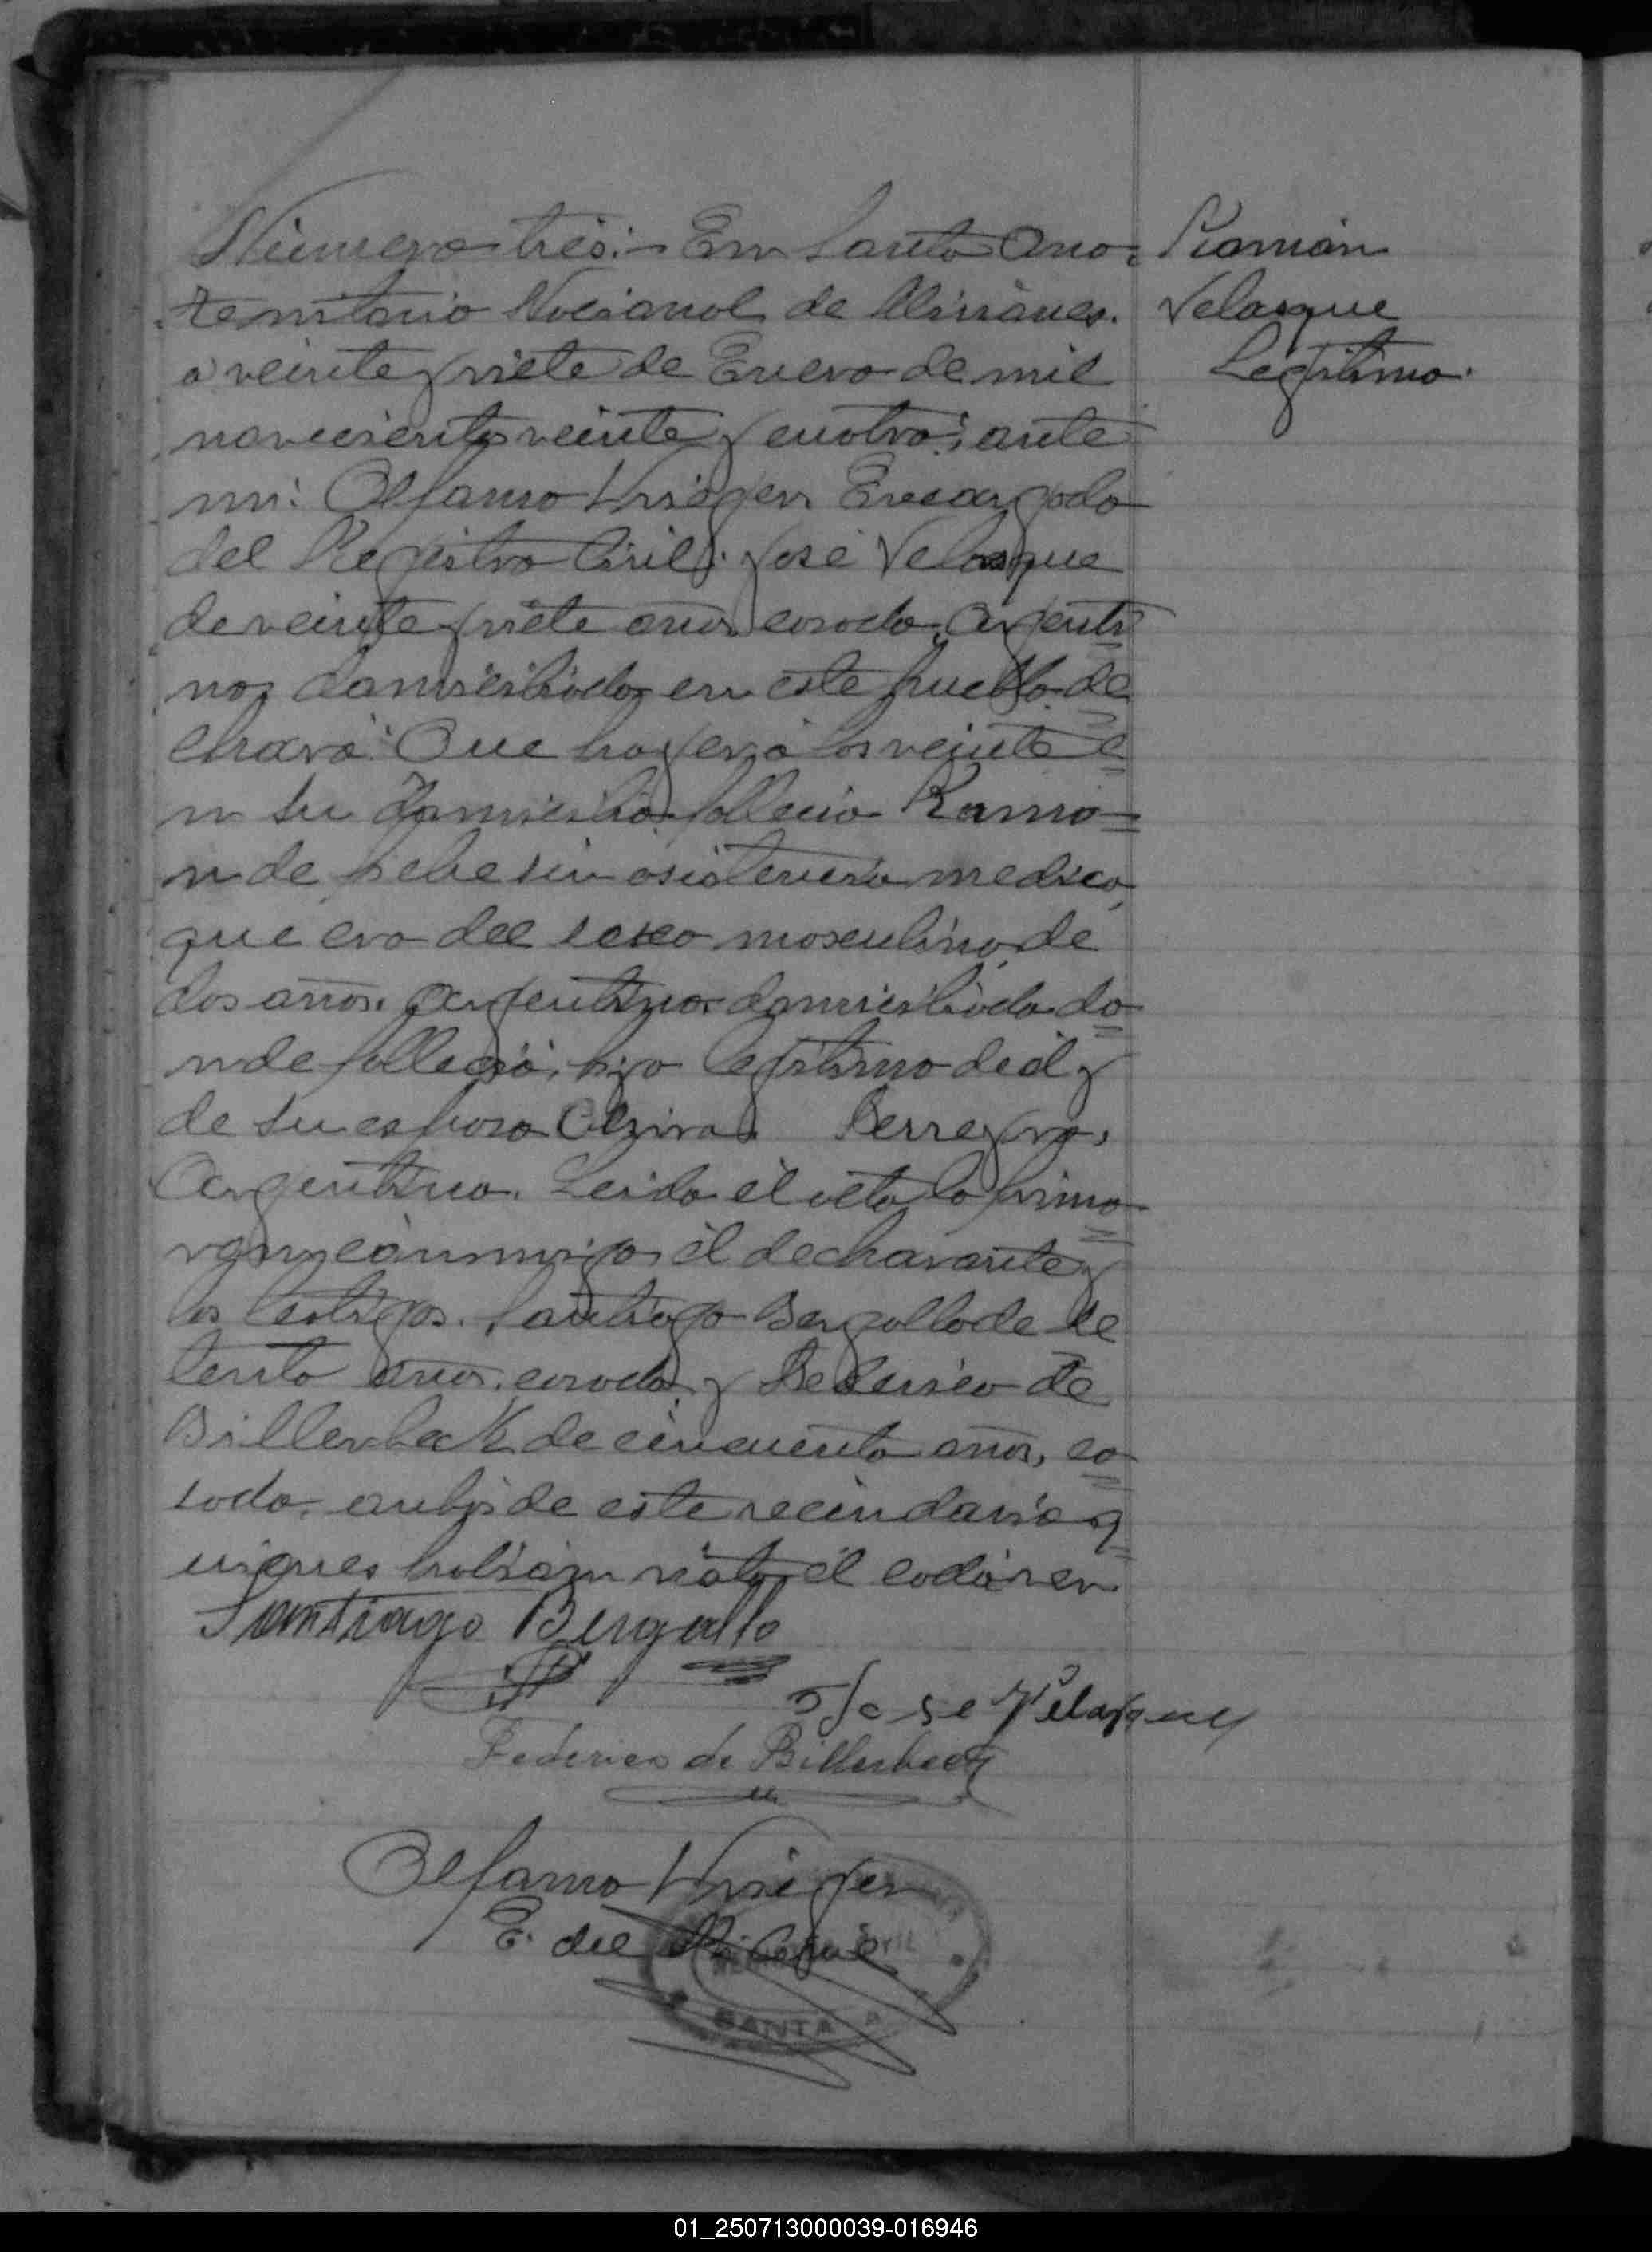 Número tres:- En Santa Ana,
territorio Nacional de Misiones.
a veinte y siete de Enero de mil
novecientos veinte y cuatro; ante
mi: Alfanso Krieger Encargado
del Registro Civil; José Velasque
de veinte y siete años, casado, Argenti
no, domisiliado en este pueblo de
claró: Que hoy a las veinte e
n su domisilio fallecio Ramo
n de fiebe sin asistencia medica,
que era del sexo masculino, de
dos años, argentino domisiliado do
nde falleció, hijo legitimo de él y
de su esposa Alzira Ferreyra,
Argentina. Leida el acta la firma
ron conmigo el declarante y
los testigos. Santiago Bergallo de se
tenta años, casado, y Federico de
Billerbeck de cincuenta años, ca
sado, anbos de este vecindario q
uienes habian visto el cadáver
Santiago Bergallo
Jose Velasquez
Federico de Billerbeck
Alfanso Krieger
E. del R. Civil
SANTA A
Ramón
Velasque
Legitimo.
01_250713000039-016946